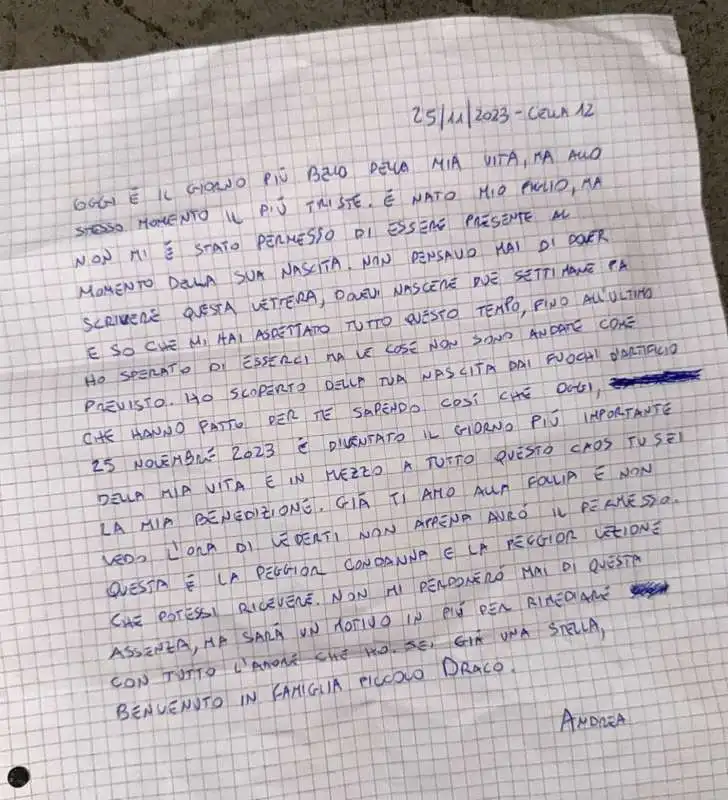 25/11/2023 - CELLA 12
OGGI È IL GIORNO PIÙ BELLO DELLA MIA VITA, MA ALLO
STESSO MOMENTO IL PIÙ TRISTE. È NATO MIO FIGLIO, MA
NON MI È STATO PERMESSO DI ESSERE PRESENTE AL
MOMENTO DELLA SUA NASCITA. NON PENSAVO MAI DI DOVER
SCRIVERE QUESTA LETTERA, DOVEVI NASCERE DUE SETTIMANE FA
E SO CHE MI HAI ASPETTATO TUTTO QUESTO TEMPO, FINO ALL'ULTIMO
HO SPERATO DI ESSERCI MA LE COSE NON SONO ANDATE COME
PREVISTO. HO SCOPERTO DELLA TUA NASCITA DAI FUOCHI D'ARTIFICIO
CHE HANNO FATTO PER TE SAPENDO COSÌ CHE OGGI,
25 NOVEMBRE 2023 È DIVENTATO IL GIORNO PIÙ IMPORTANTE
DELLA MIA VITA E IN MEZZO A TUTTO QUESTO CAOS TU SEI
LA MIA BENEDIZIONE. GIÀ TI AMO ALLA FOLLIA E NON
VEDO L'ORA DI VEDERTI NON APPENA AVRÒ IL PERMESSO.
QUESTA È LA PEGGIOR CONDANNA E LA PEGGIOR LEZIONE
CHE POTESSI RICEVERE. NON MI PERDONERÒ MAI DI QUESTA
ASSENZA, MA SARÀ UN MOTIVO IN PIÙ PER RIMEDIARE
CON TUTTO L'AMORE CHE HO. SEI GIÀ UNA STELLA,
BENVENUTO IN FAMIGLIA PICCOLO DRACO.
ANDREA